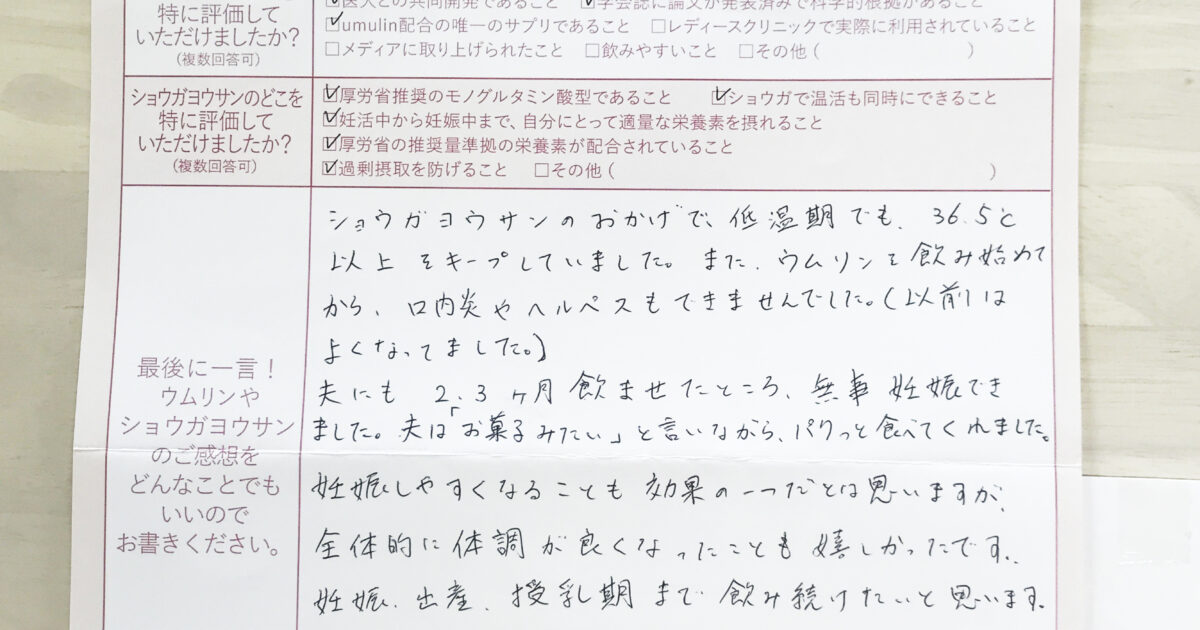 特に評価して
いただけましたか？
（複数回答可）
☑医大との共同開発であること ☑学会誌に論文が発表済みで科学的根拠があること
☑umulin配合の唯一のサプリであること □レディースクリニックで実際に利用されていること
□メディアに取り上げられたこと □飲みやすいこと □その他（ ）
ショウガヨウサンのどこを
特に評価して
いただけましたか？
（複数回答可）
☑厚労省推奨のモノグルタミン酸型であること ☑ショウガで温活も同時にできること
☑妊活中から妊娠中まで、自分にとって適量な栄養素を摂れること
☑厚労省の推奨量準拠の栄養素が配合されていること
☑過剰摂取を防げること □その他（ ）
最後に一言！
ウムリンや
ショウガヨウサン
のご感想を
どんなことでも
いいので
お書きください。
ショウガヨウサンのおかげで、低温期でも、36.5℃
以上をキープしていました。また、ウムリンを飲み始めて
から、口内炎やヘルペスもできませんでした。(以前は
よくなってました。)
夫にも 2.3ヶ月飲ませたところ、無事妊娠でき
ました。夫は「お菓子みたい」と言いながら、パクっと食べてくれました。
妊娠しやすくなることも効果の一つだとは思いますが、
全体的に体調が良くなったことも嬉しかったです。
妊娠、出産、授乳期まで飲み続けたいと思います。